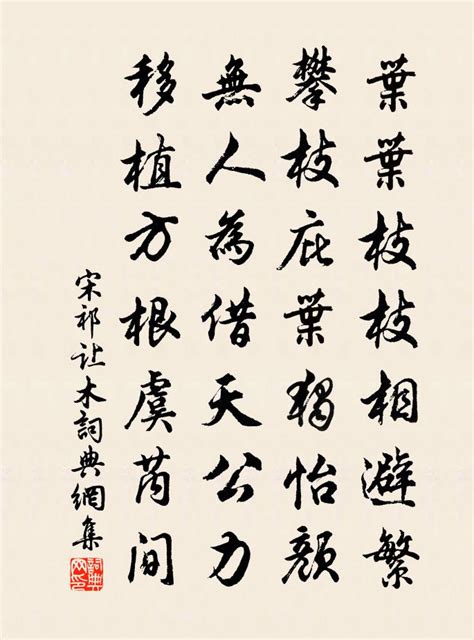 葉葉枝枝相避繁
攀枝庇葉獨怡顏
無人為借天公力
移植方根虞芮间
宋祁让木詞典網集
詞典網